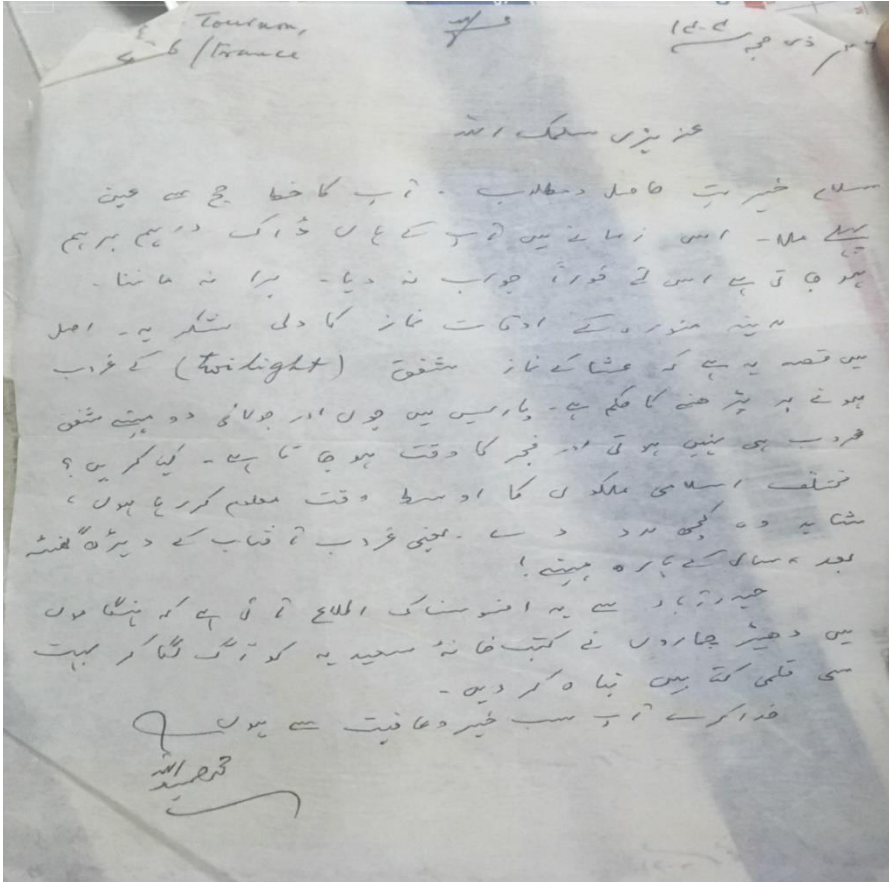 Tournon,
6 / France
۱۴۰۴ ذی حجہ
عزیزی سلمک اللہ
سلام خیریت حاصل و مطلوب ۔ آپ کا خط حج سے عین
پہلے ملا۔ اس زمانے میں آپ کے ہاں ڈاک درہم برہم
ہو جاتی ہے اس لئے فوراً جواب نہ دیا۔ برا نہ ماننا۔
مدینہ منورہ کے اوقات نماز کا دلی شکریہ۔ اصل
میں قصہ یہ ہے کہ عشا کے نماز شفق (twilight) کے غروب
ہونے پر پڑھنے کا حکم ہے۔ پاریس میں جون اور جولائی دو مہینے شفق
غروب ہی نہیں ہوتی اور فجر کا وقت ہو جاتا ہے۔ کیا کریں؟
مختلف اسلامی ملکوں کا اوسط وقت معلوم کر رہا ہوں،
شاید وہ کچھ مدد دے۔ یعنی غروب آفتاب کے ڈیڑھ گھنٹہ
بعد، سال کے بارہ مہینے!
حیدرآباد سے یہ افسوسناک اطلاع آئی ہے کہ ہنگاموں
میں نے کتب خانۂ سعیدیہ کو آگ لگا کر بہت
سی قلمی کتابیں تباہ کر دیں۔
خدا کرے آپ سب خیر و عافیت سے ہوں
محمد حمید اللہ